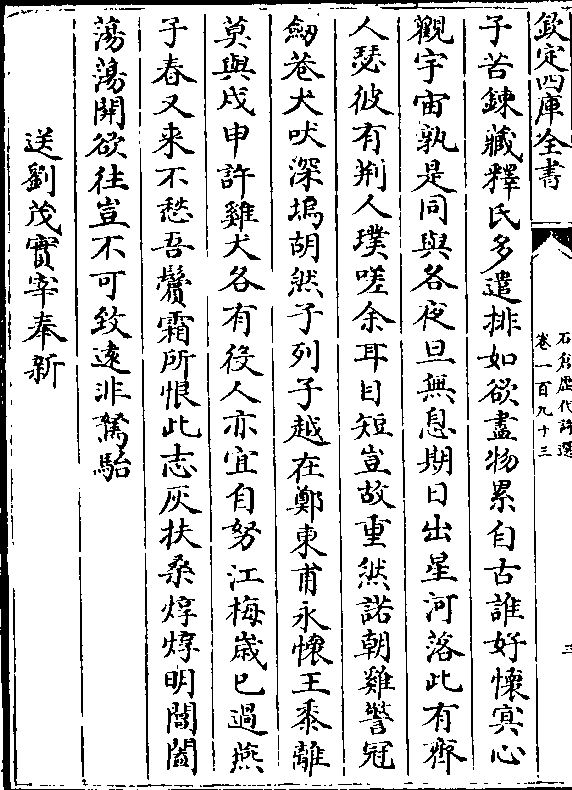 欽定四庫全書
石倉歷代詩選
卷一百九十三
三
子苦鍊藏釋氏多遣排如欲盡物累自古誰好懷冥心
觀宇宙孰是同與各夜旦無息期日出星河落此有齊
人瑟彼有荆人璞嗟余耳目短豈故重然諾朝雞警冠
劒巷犬吠深塢胡然子列子越在鄭東甫永懷王黍離
莫與戍申許雞犬各有役人亦宜自努江梅歲已過燕
子春又来不愁吾鬢霜所恨此志灰扶桑焞焞明閶闔
蕩蕩開欲往豈不可致遠非駑駘
送劉茂實宰奉新